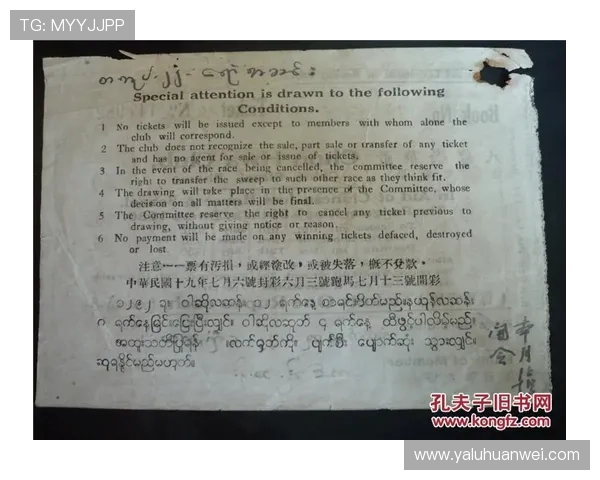 TG: MYYJJPP
Special attention is drawn to the following
Conditions.
1 No tickets will be issued except to members with whom alone the
club will correspond.
2 The club does not recognize the sale, part sale or transfer of any ticket
and has no agent for sale or issue of tickets.
3 In the event of the race being cancelled, the committee reserve the
right to transfer the sweep to such other race as they think fit.
4 The drawing will take place in the presence of the Committee, whose
decision on all matters will be final.
5 The Committee reserve the right to cancel any ticket previous to
drawing, without giving notice or reason.
6 No payment will be made on any winning tickets defaced, destroyed
or lost
注意一一票有污損，或經塗改，或被失落，概不兌款。
中華民國十九年七月六號封彩六月三號跑馬七月十三號開彩
၁၂၉၂ ခု၊ ဝါဆိုလဆန်း ၁၂ ရက်နေ့ စာရင်းပိတ်မည်။ နယုန်လဆန်း
၈ ရက်နေ့မြင်းပြေးပြီးလျှင်။ ဝါဆိုလဆုတ် ၄ ရက်နေ့ ထီဖွင့်ပါလိမ့်မည်။
အထူးသတိပြုရန်။ ။လက်မှတ်ကို ပျက်စီး ပျောက်ဆုံး သွားလျှင်
ဆုရနိုင်မည်မဟုတ်။
孔夫子旧书网
www.kongfz.com
www.yaluhuanwei.com